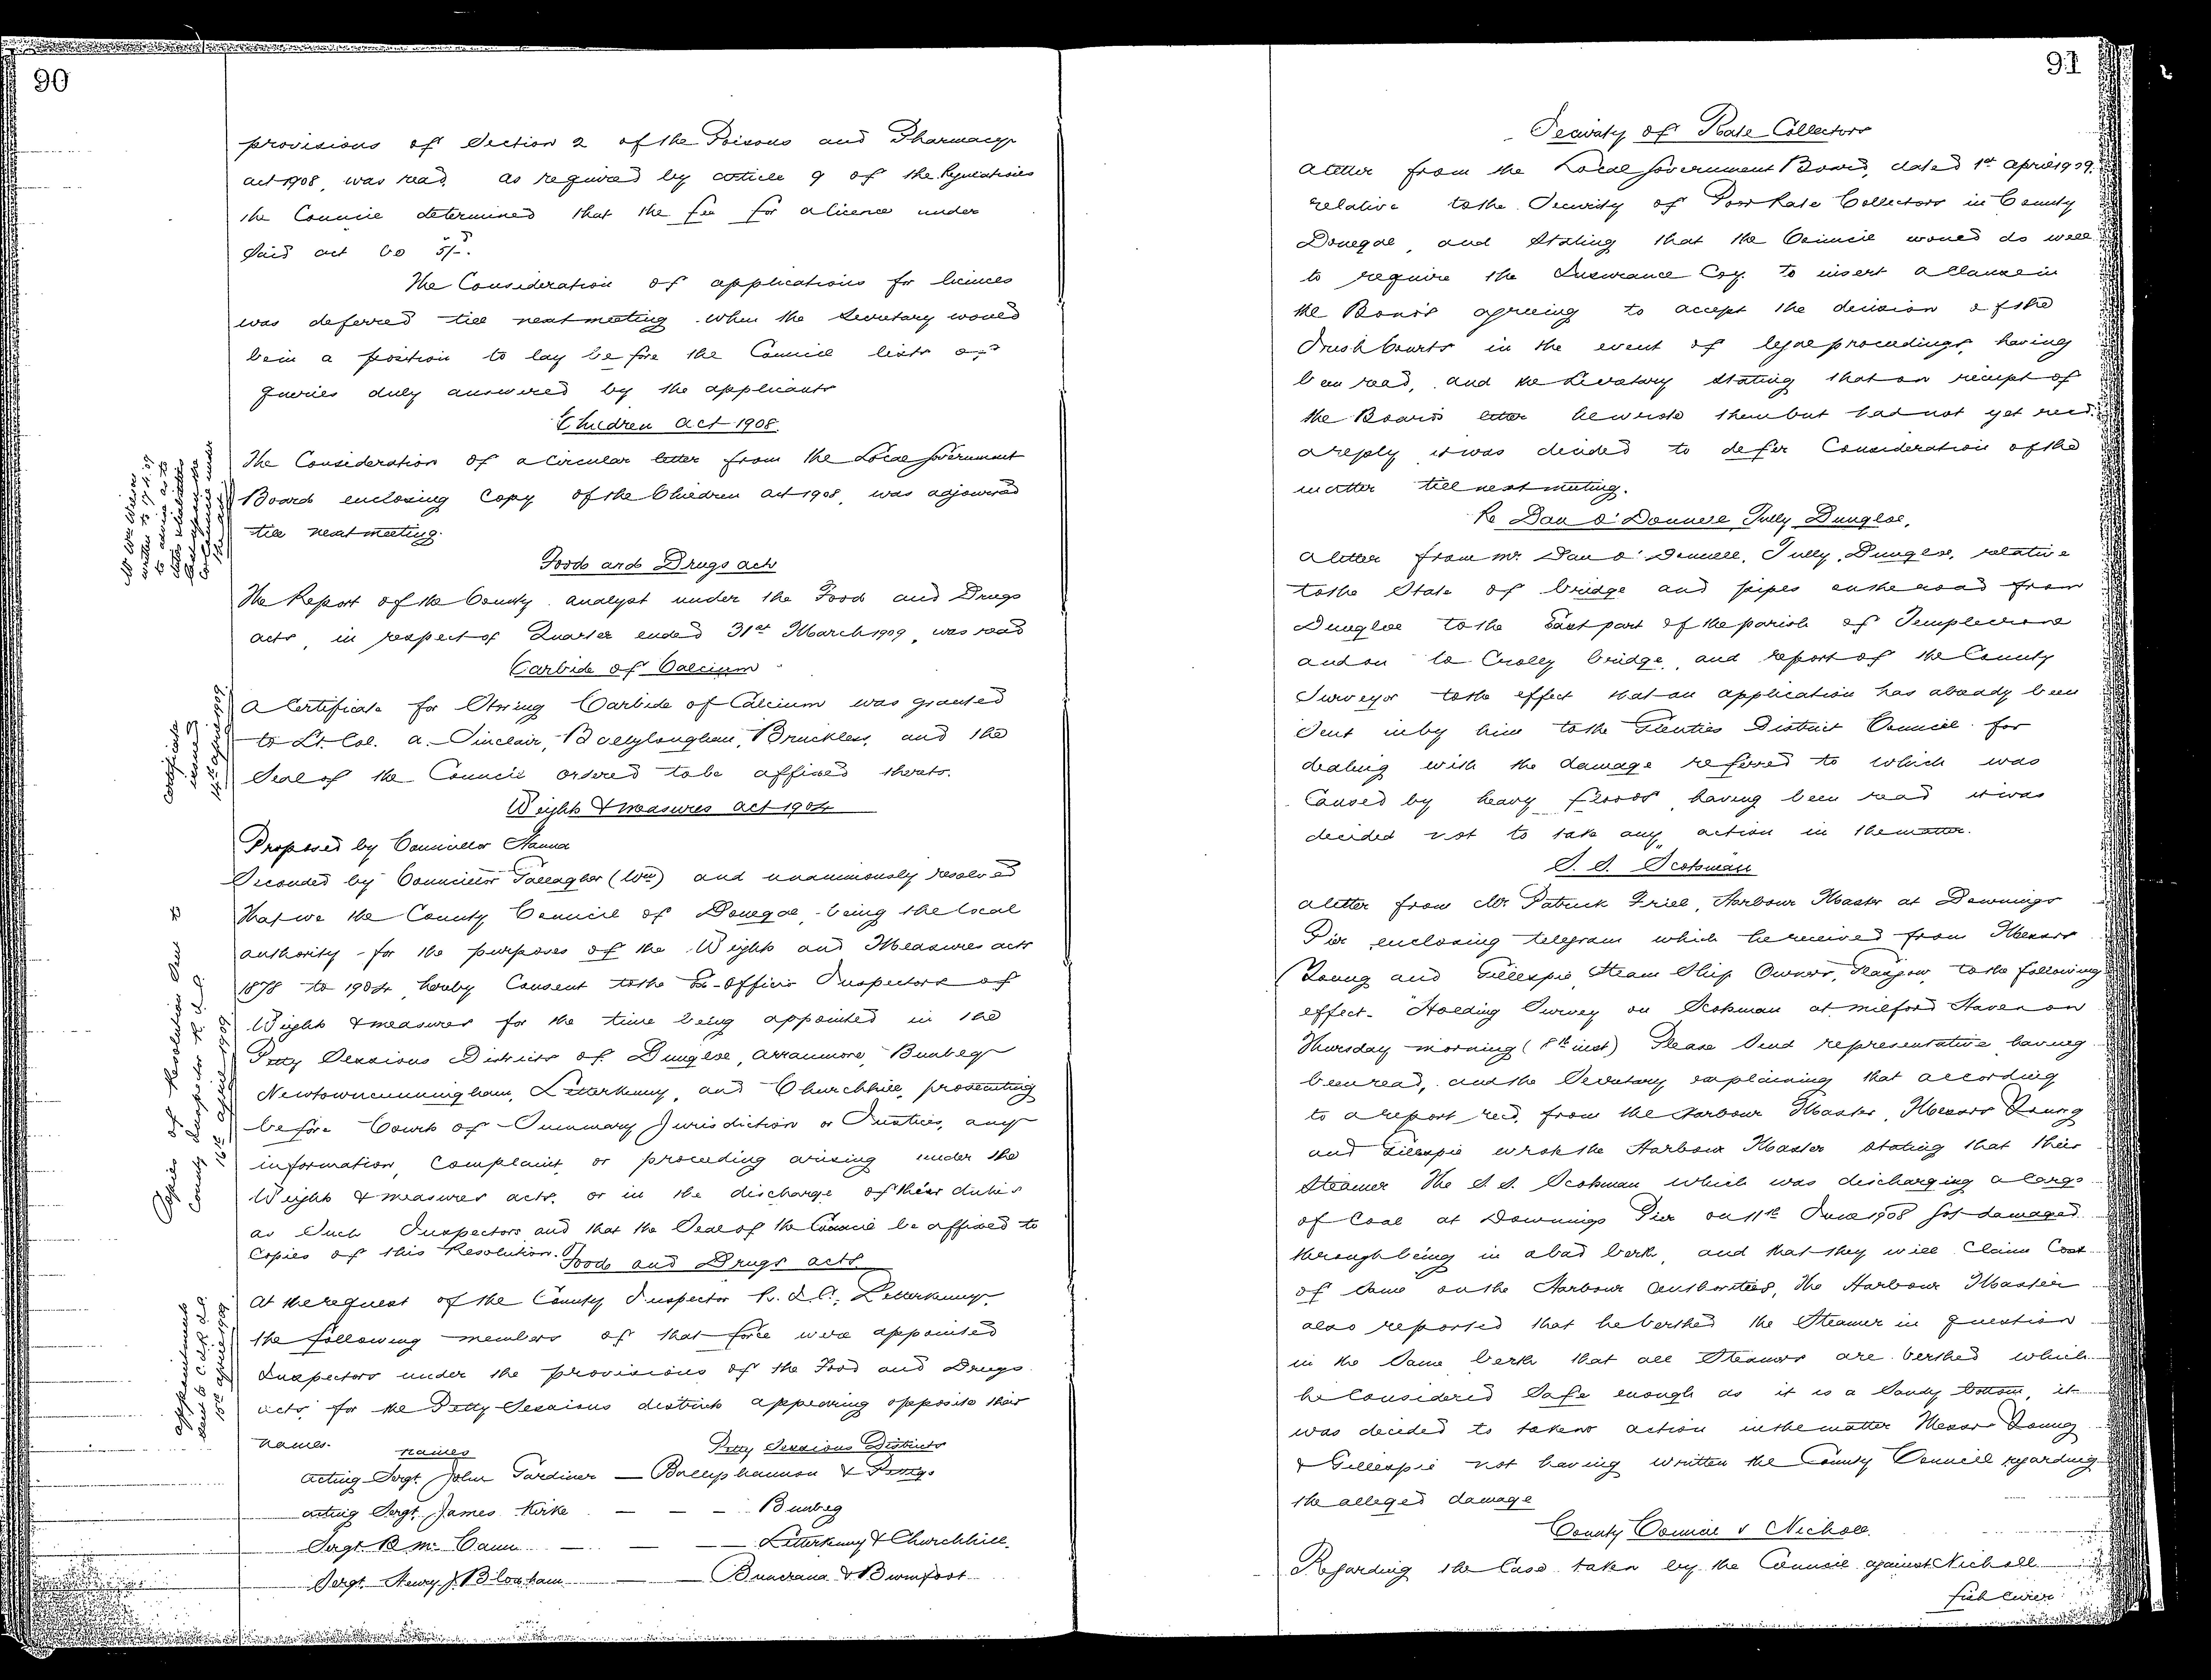 90
provisions of Section 2 of the Poisons and Pharmacy
act 1908, was read. As required by article 9 of the Regulations
the Council determined that the fee for a licence under
said act be 5/-.
The Consideration of applications for licences
was deferred till next meeting when the Secretary would
be in a position to lay before the Council lists of
queries duly answered by the applicants
Children Act 1908.
The Consideration of a Circular letter from the Local Government
Board enclosing Copy of the Children Act 1908, was adjourned
till next meeting.
Food and Drugs acts
The Report of the County analyst under the Food and Drugs
acts, in respect of Quarter ended 31st March 1909, was read
Carbide of Calcium
Certificate
issued
14th april 1909
A Certificate for Storing Carbide of Calcium was granted
to Lt. Col. A. Sinclair, Ballyloughan, Bruckless, and the
Seal of the Council ordered to be affixed thereto.
Weights & measures act 1904
Proposed by Councillor Hanna
Seconded by Councillor Gallagher (Wm) and unanimously resolved
That we the County Council of Donegal, being the local
authority for the purposes of the Weights and Measures acts
1878 to 1904, hereby Consent to the Ex-Officio Inspectors of
Weights & measures for the time being appointed in the
Petty Sessions Districts of Dungloe, Arranmore, Bunbeg
Newtowncunningham, Letterkenny, and Churchhill, prosecuting
before Courts of Summary Jurisdiction or Justices, any
information, Complaint, or proceeding arising under the
Weights & measures acts, or in the discharge of their duties
as Such Inspectors and that the Seal of the Council be affixed to
Copies of this Resolution.
Copies of Resolution Sent to
County Inspector R.I.C.
16th april 1909
Food and Drugs acts
At the request of the County Inspector R.I.C., Letterkenny,
the following members of that force were appointed
Inspectors under the provisions of the Food and Drugs
acts, for the Petty Sessions districts appearing opposite their
names.
appointments
sent to C.I. R.I.C.
15th april 1909
names Petty Sessions Districts
Acting Sergt. John Gardiner — Ballyshannon & Pettigo
Acting Sergt. James Kirke — — — Bunbeg
Sergt. Mc Cann — — — Letterkenny & Churchhill.
Sergt. Henry J. Bloxham — Buncrana & Burnfoot
91
Security of Rate Collectors
A letter from the Local Government Board, dated 1st April 1909,
relative to the Security of Poor Rate Collectors in County
Donegal, and Stating that the Council would do well
to require the Insurance Coy. to insert a Clause in
the Bonds agreeing to accept the decision of the
Irish Courts in the event of legal proceedings, having
been read, and the Secretary stating that on receipt of
the Board's letter he wrote them but had not yet recd.
a reply it was decided to defer Consideration of the
matter till next meeting.
Re Dan O'Donnell, Tully, Dungloe.
A letter from Mr. Dan O'Donnell, Tully, Dungloe, relative
to the State of bridge and pipes on the road from
Dungloe to the East part of the parish of Templecrone
and on to Crolly bridge, and report of the County
Surveyor to the effect that an application has already been
Sent in by him to the Glenties District Council for
dealing with the damage referred to which was
Caused by heavy floods, having been read it was
decided not to take any action in the matter.
S. S. Scotsman
A letter from Mr. Patrick Friel, Harbour Master at Downings
Pier enclosing telegram which he received from Messrs
Young and Gillespie, Steam Ship Owners, Glasgow, to the following
effect - "Holding Survey on Scotsman at Milford Haven on
Thursday morning (8th inst) Please Send representative having
been read, and the Secretary explaining that according
to a report recd. from the Harbour Master, Messrs Young
and Gillespie wrote the Harbour Master stating that their
Steamer the S. S. Scotsman which was discharging a Cargo
of Coal at Downings Pier on 11th June 1908 got damaged
through being in a bad berth, and that they will Claim Cost
of Same on the Harbour Authorities, the Harbour Master
also reported that he berthed the Steamer in question
in the Same berth that all Steamers are berthed which
he Considered Safe enough as it is a Sandy bottom, it
was decided to take no action in the matter Messrs Young
& Gillespie not having written the County Council regarding
the alleged damage
County Council v Nicholl.
Regarding the Case taken by the Council against Nicholl
fish Curer